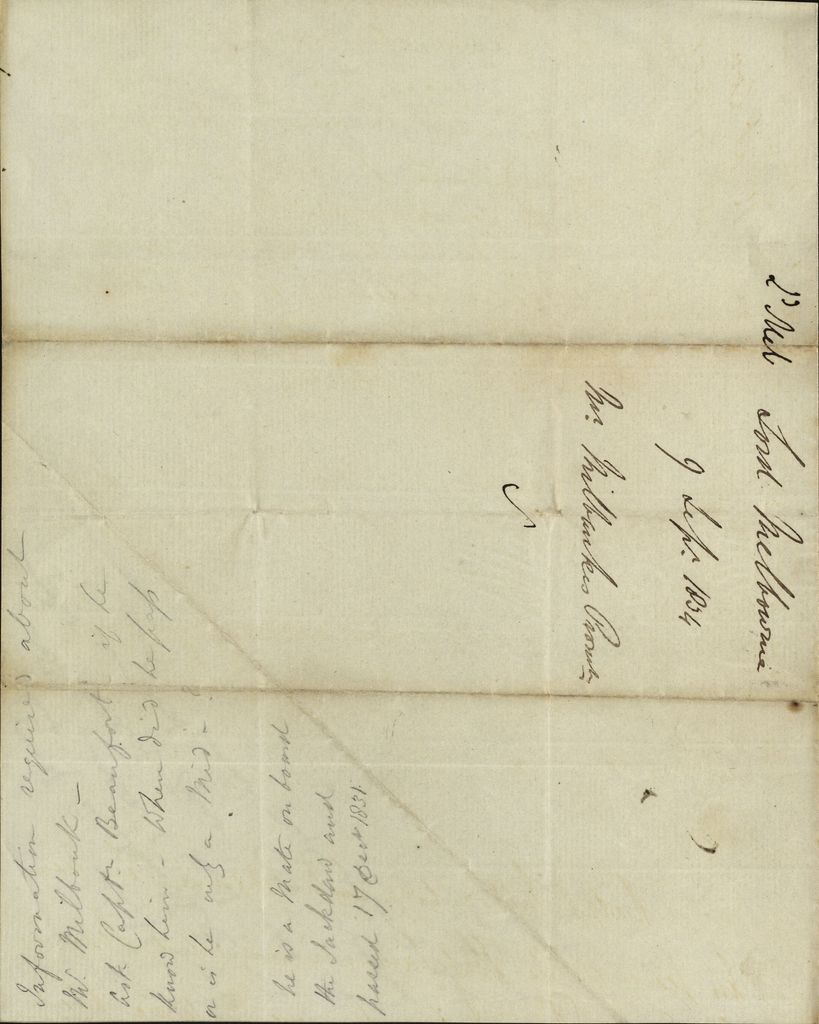 Ld Mel Lord Melbourne
9 Sepr. 1834
Mr. Milbankes Promtn
Information required about
Mr. Milbank —
Ask Captn. Beaufort if he
knows him — When did he pass
or is he only a Mid — ?
he is a Mate on board
the Jackdaw and
passed 17 1831.